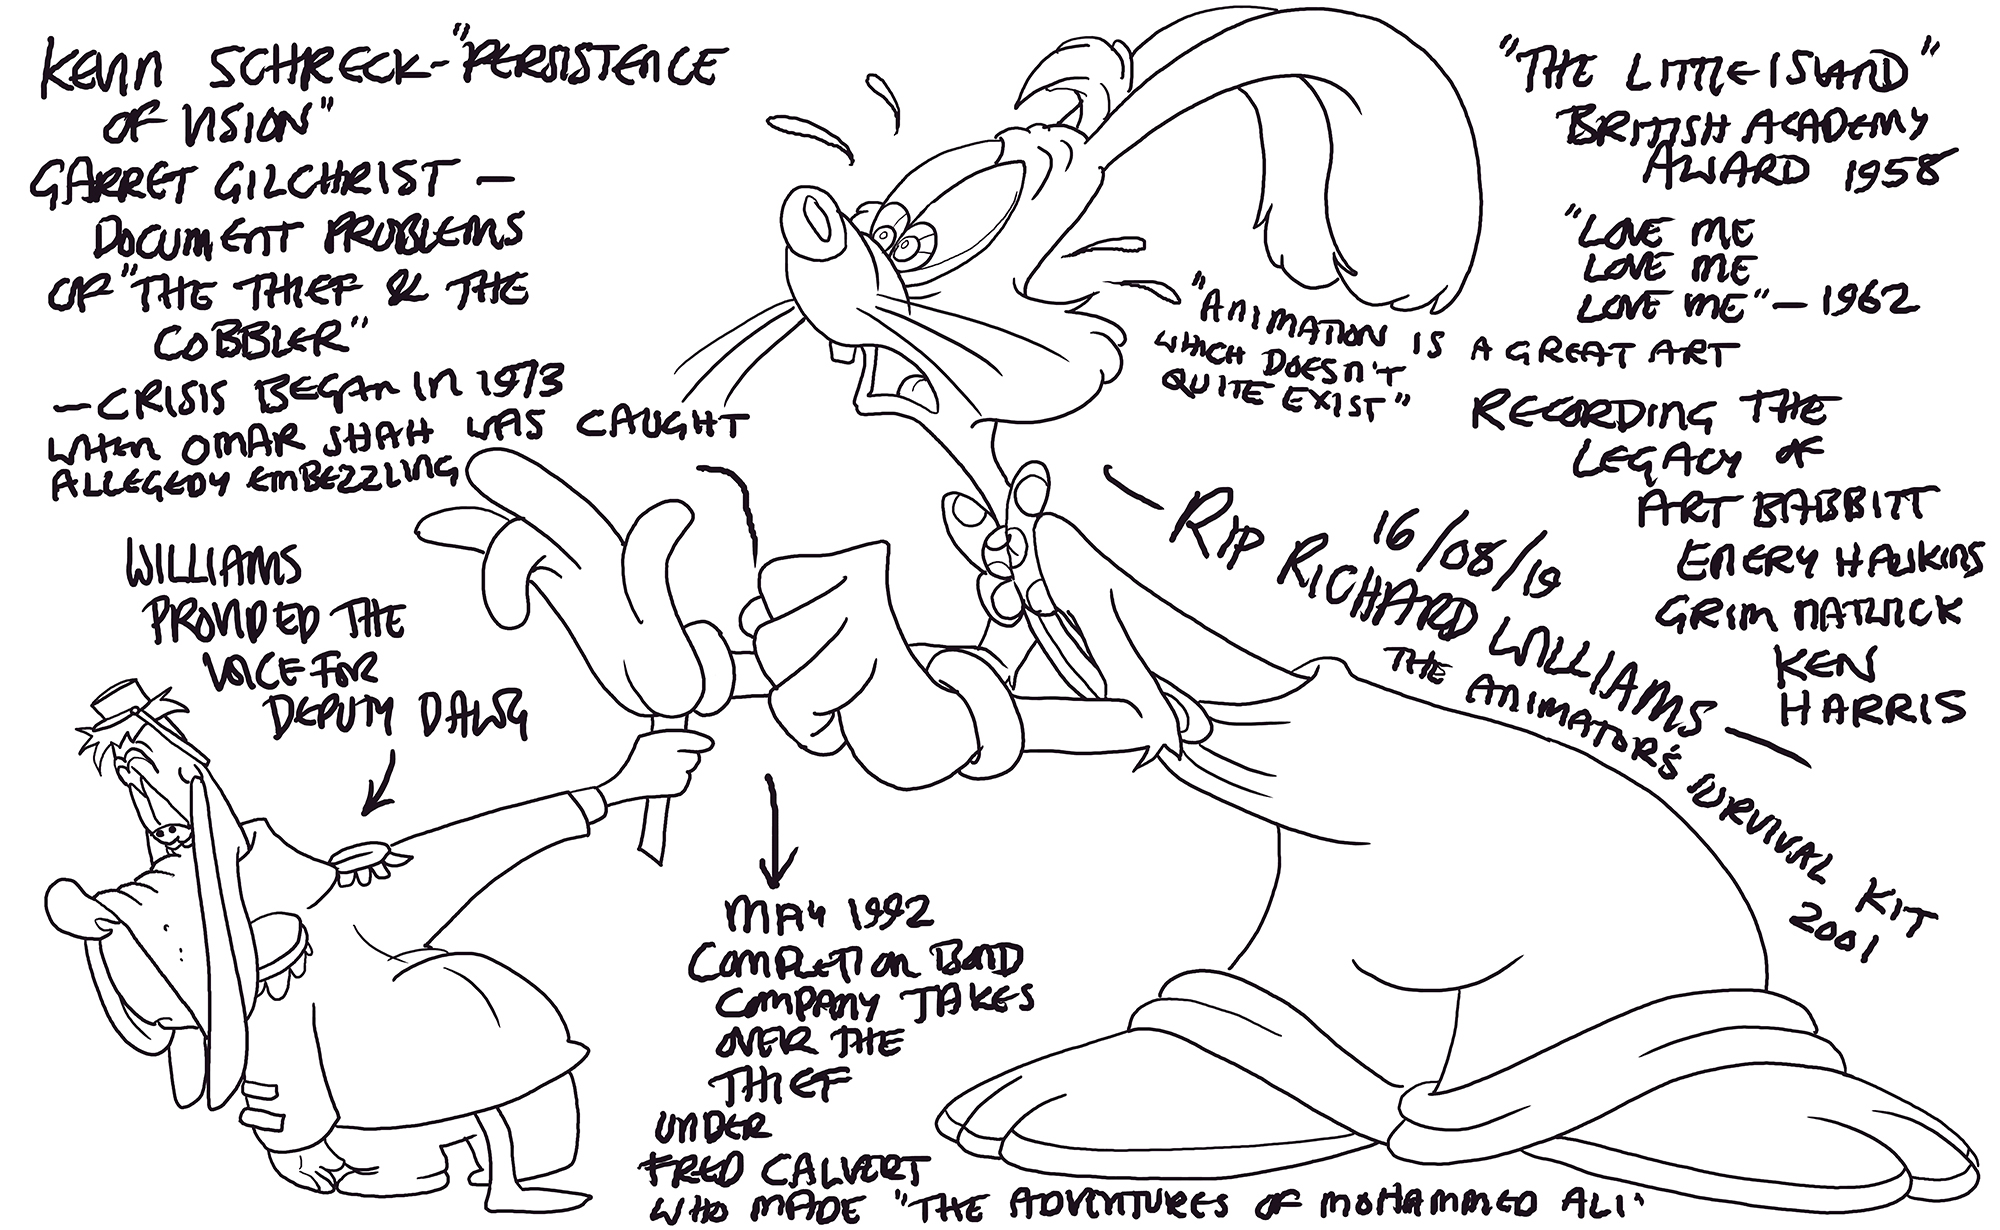 KEVIN SCHRECK - "PERSISTENCE
OF VISION"
GARRET GILCHRIST -
DOCUMENT PROBLEMS
OF "THE THIEF & THE
COBBLER"
- CRISIS BEGAN IN 1973
WHEN OMAR SHAH WAS CAUGHT
ALLEGEDY EMBEZZLING
WILLIAMS
PROVIDED THE
VOICE FOR
DEPUTY DAWG
MAY 1992
COMPLETION BOND
COMPANY TAKES
OVER THE
THIEF
UNDER
FRED CALVERT
WHO MADE "THE ADVENTURES OF MOHAMMED ALI'
"ANIMATION IS A GREAT ART
WHICH DOESN'T
QUITE EXIST"
16/08/19
- RIP RICHARD WILLIAMS -
THE ANIMATOR'S SURVIVAL KIT
2001
"THE LITTLE ISLAND"
BRITISH ACADEMY
AWARD 1958
"LOVE ME
LOVE ME
LOVE ME" - 1962
RECORDING THE
LEGACY OF
ART BABBITT
EMERY HAWKINS
GRIM NATWICK
KEN
HARRIS